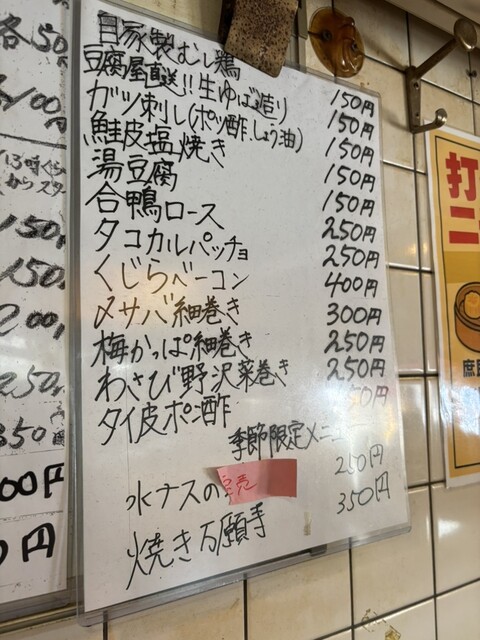 各50
100円
からスタ
150
150
200
250
350
00円
0円
自家製むし鶏 150円
豆腐屋直送!!生ゆば造り 150円
ガツ刺し(ポン酢.しょう油) 150円
鮭皮塩焼き 150円
湯豆腐 150円
合鴨ロース 250円
タコカルパッチョ 250円
くじらベーコン 400円
〆サバ細巻き 300円
梅かっぱ細巻き 250円
わさび野沢菜巻き 250円
タイ皮ポン酢 50円
季節限定メニュー
水ナスの 完売 250円
焼き万願寺 350円
打
ニ